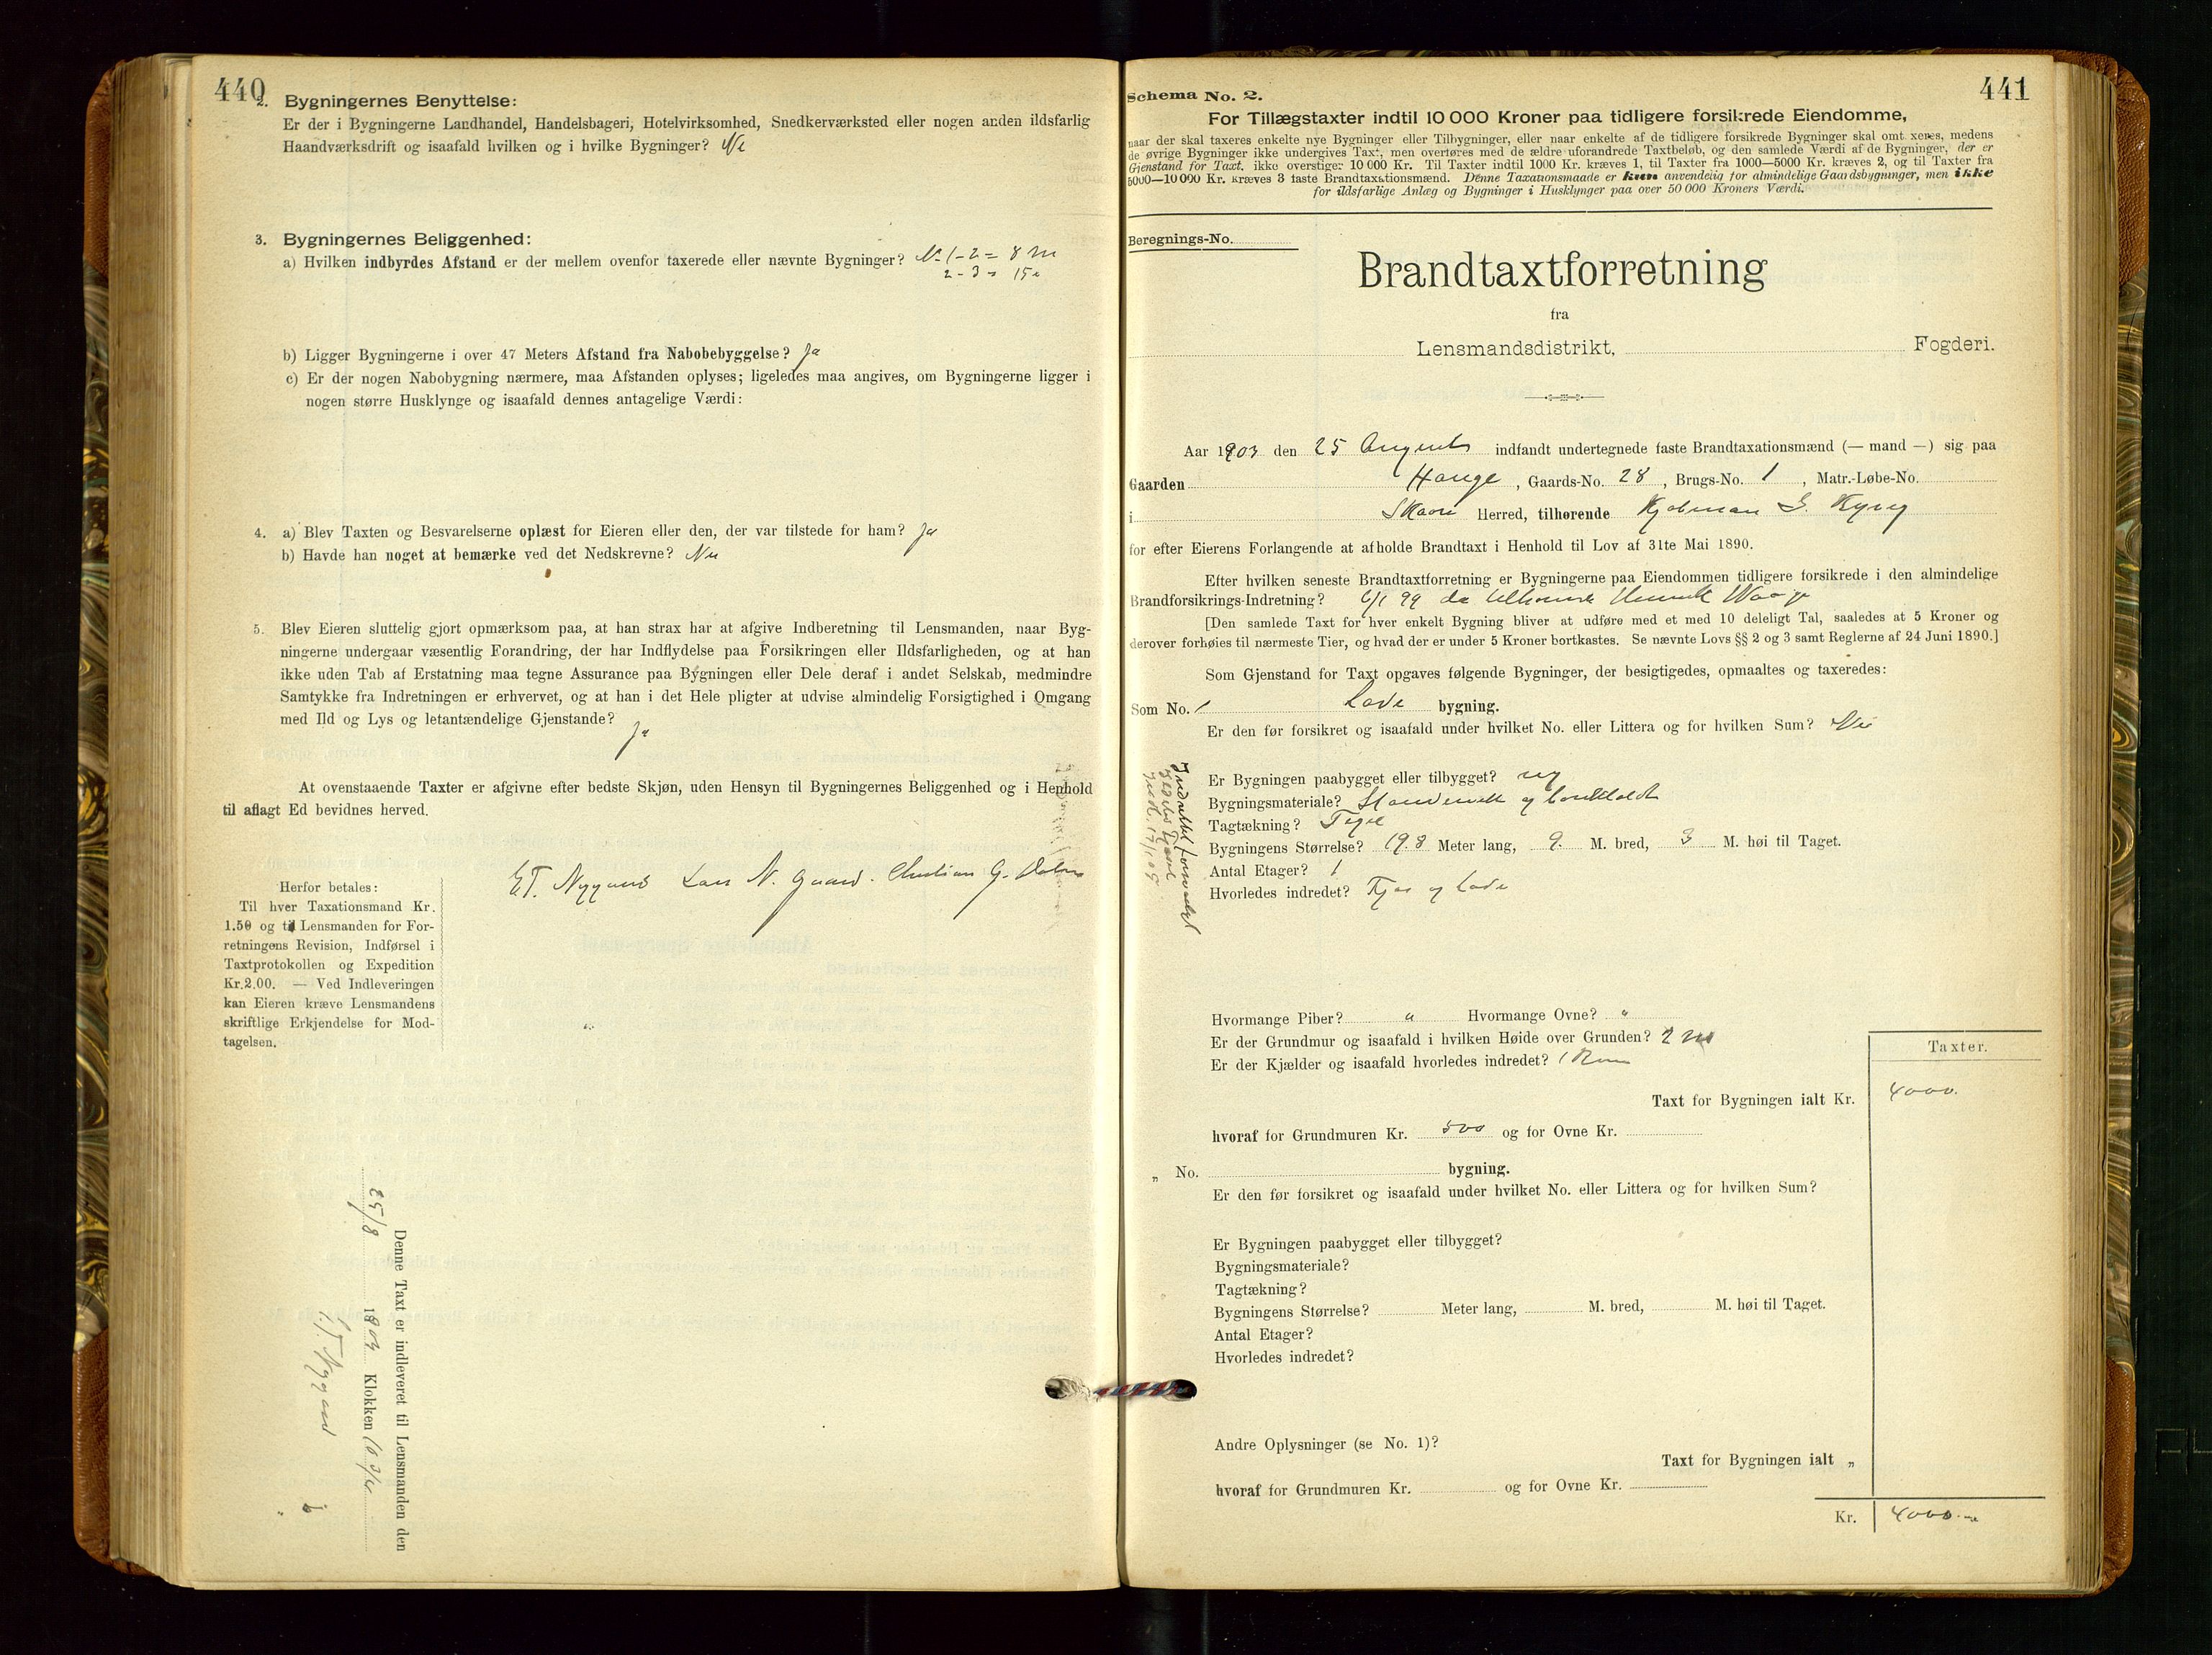 440
2. Bygningernes Benyttelse:
Er der i Bygningerne Landhandel, Handelsbageri, Hotelvirksomhed, Snedkerværksted eller nogen anden ildsfarlig
Haandværksdrift og isaafald hvilken og i hvilke Bygninger? Nei
3. Bygningernes Beliggenhed:
a) Hvilken indbyrdes Afstand er der mellem ovenfor taxerede eller nævnte Bygninger? No 1-2 = 8 m
2-3 = 15 "
b) Ligger Bygningerne i over 47 Meters Afstand fra Nabobebyggelse? Ja
c) Er der nogen Nabobygning nærmere, maa Afstanden oplyses; ligeledes maa angives, om Bygningerne ligger i
nogen større Husklynge og isaafald dennes antagelige Værdi:
4. a) Blev Taxten og Besvarelserne oplæst for Eieren eller den, der var tilstede for ham? Ja
b) Havde han noget at bemærke ved det Nedskrevne? Nei
5. Blev Eieren sluttelig gjort opmærksom paa, at han strax har at afgive Indberetning til Lensmanden, naar Byg-
ningerne undergaar væsentlig Forandring, der har Indflydelse paa Forsikringen eller Ildsfarligheden, og at han
ikke uden Tab af Erstatning maa tegne Assurance paa Bygningen eller Dele deraf i andet Selskab, medmindre
Samtykke fra Indretningen er erhvervet, og at han i det Hele pligter at udvise almindelig Forsigtighed i Omgang
med Ild og Lys og letantændelige Gjenstande?
Ja
At ovenstaaende Taxter er afgivne efter bedste Skjøn, uden Hensyn til Bygningernes Beliggenhed og i Henhold
til aflagt Ed bevidnes herved.
E.T. Nygaard Lars N. Gaard. Christian G.
Herfor betales:
Til hver Taxationsmand Kr.
1.50 og til Lensmanden for For-
retningens Revision, Indførsel i
Taxtprotokollen og Expedition
Kr. 2.00. — Ved Indleveringen
kan Eieren kræve Lensmandens
skriftlige Erkjendelse for Mod-
tagelsen.
Denne Taxt er indleveret til Lensmanden den
25/8 1903 Klokken
Nygaard
441
Schema No. 2.
For Tillægstaxter indtil 10 000 Kroner paa tidligere forsikrede Eiendomme,
naar der skal taxeres enkelte nye Bygninger eller Tilbygninger, eller naar enkelte af de tidligere forsikrede Bygninger skal omtaxeres, medens
de øvrige Bygninger ikke undergives Taxt, men overføres med de ældre uforandrede Taxtbeløb, og den samlede Værdi af de Bygninger, der er
Gjenstand for Taxt, ikke overstiger 10 000 Kr. Til Taxter indtil 1000 Kr. kræves 1, til Taxter fra 1000—5000 Kr. kræves 2, og til Taxter fra
5000—10 000 Kr. kræves 3 faste Brandtaxationsmænd. Denne Taxationsmaade er kun anvendelig for almindelige Gaardsbygninger, men ikke
for ildsfarlige Anlæg og Bygninger i Husklynger paa over 50 000 Kroners Værdi.
Beregnings-No.
Brandtaxtforretning
fra
Lensmandsdistrikt, Fogderi.
Aar 1903 den 25 August indfandt undertegnede faste Brandtaxationsmænd (— mand —) sig paa
Gaarden Hauge, Gaards-No. 28, Brugs-No. 1, Matr.-Løbe-No.
i Skaare Herred, tilhørende Kjøbman G.
for efter Eierens Forlangende at afholde Brandtaxt i Henhold til Lov af 31te Mai 1890.
Efter hvilken seneste Brandtaxtforretning er Bygningerne paa Eiendommen tidligere forsikrede i den almindelige
Brandforsikrings-Indretning? 6/1 99 da Henrik Waage
[Den samlede Taxt for hver enkelt Bygning bliver at udføre med et med 10 deleligt Tal, saaledes at 5 Kroner og
derover forhøies til nærmeste Tier, og hvad der er under 5 Kroner bortkastes. Se nævnte Lovs §§ 2 og 3 samt Reglerne af 24 Juni 1890.]
Som Gjenstand for Taxt opgaves følgende Bygninger, der besigtigedes, opmaaltes og taxeredes:
Som No. 1 Lade bygning.
Er den før forsikret og isaafald under hvilket No. eller Littera og for hvilken Sum? Nei
Er Bygningen paabygget eller tilbygget? ny
Bygningsmateriale? og bordklædt
Tagtækning? Tegl
Bygningens Størrelse? 19.8 Meter lang, 9. M. bred, 3 M. høi til Taget.
Antal Etager? 1
Hvorledes indredet? Fjøs og Lade
Hvormange Piber? " Hvormange Ovne? "
Er der Grundmur og isaafald i hvilken Høide over Grunden? 2 m
Er der Kjælder og isaafald hvorledes indredet? 1 Rum
Taxter.
Taxt for Bygningen ialt Kr. 4000.
hvoraf for Grundmuren Kr. 500 og for Ovne Kr.
" No. bygning.
Er den før forsikret og isaafald under hvilket No. eller Littera og for hvilken Sum?
Er Bygningen paabygget eller tilbygget?
Bygningsmateriale?
Tagtækning?
Bygningens Størrelse? Meter lang, M. bred, M. høi til Taget.
Antal Etager?
Hvorledes indredet?
Andre Oplysninger (se No. 1)?
Taxt for Bygningen ialt "
hvoraf for Grundmuren Kr. og for Ovne Kr.
Kr. 4000.